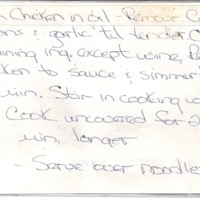 Chicken in oil - Remove C
ons & garlic til tender
ining ing. except wine, Re
ken to sauce & simmer
min. Stir in cooking w
Cook uncovered for 2
min. longer
- Serve over noodles